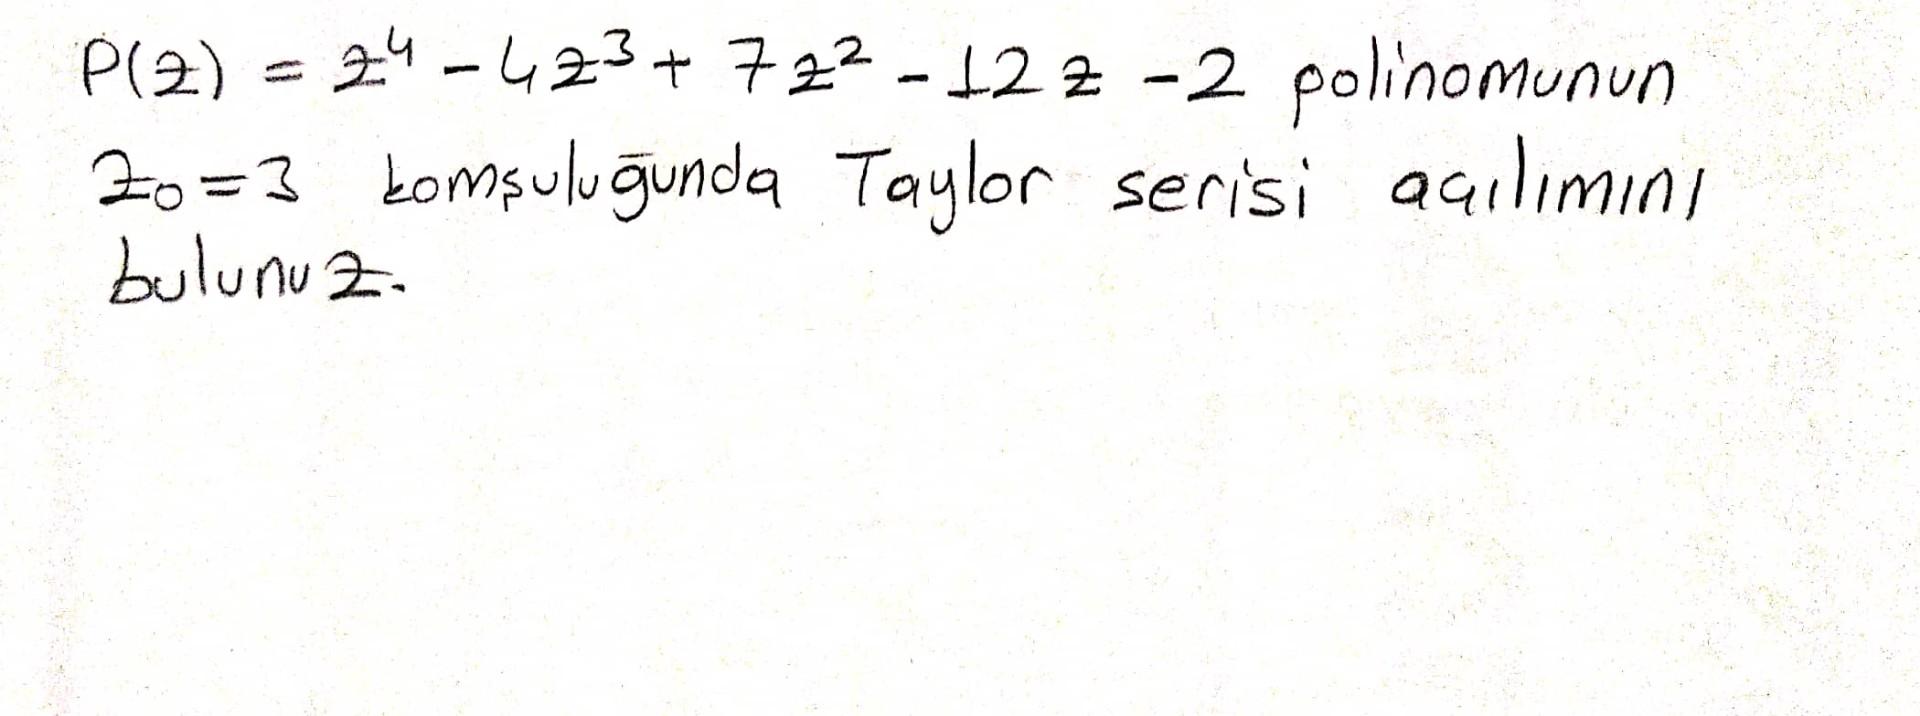 P(z) = z⁴ - 4z³ + 7z² - 12z - 2 polinomunun
z₀ = 3 komşuluğunda Taylor serisi açılımını
bulunuz.